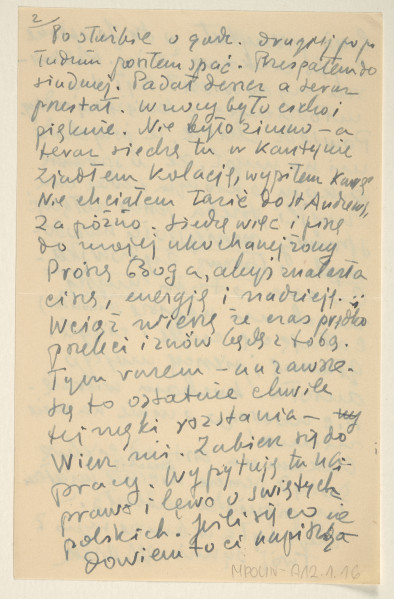 2/
Po służbie o godz. drugiej po po
łudniu poszłem spać. Przespałem do
siódmej. Padał deszcz a teraz
przestał. W nocy było cicho i
pięknie. Nie było zimno – a
teraz siedzę tu w kantynie
Zjadłem kolację, wypiłem kawę
Nie chciałem łazić do St Andrews,
za późno. Siedzę więc i piszę
do mojej ukochanej żony
Proszę Boga, abyś znalazła
ciszę, energię i nadzieję.
Wciąż wierzę że czas prędko
przeleci i znów będę z tobą.
Tym razem – na zawsze.
Są to ostatnie chwile
tej męki rozstania –
Wierz mi. Zabierz się do
pracy. Wypytują tu na
prawo i lewo o świętych
polskich. Jeśli się co
dowiem to ci napiszę
MPOLIN-A12.1.16